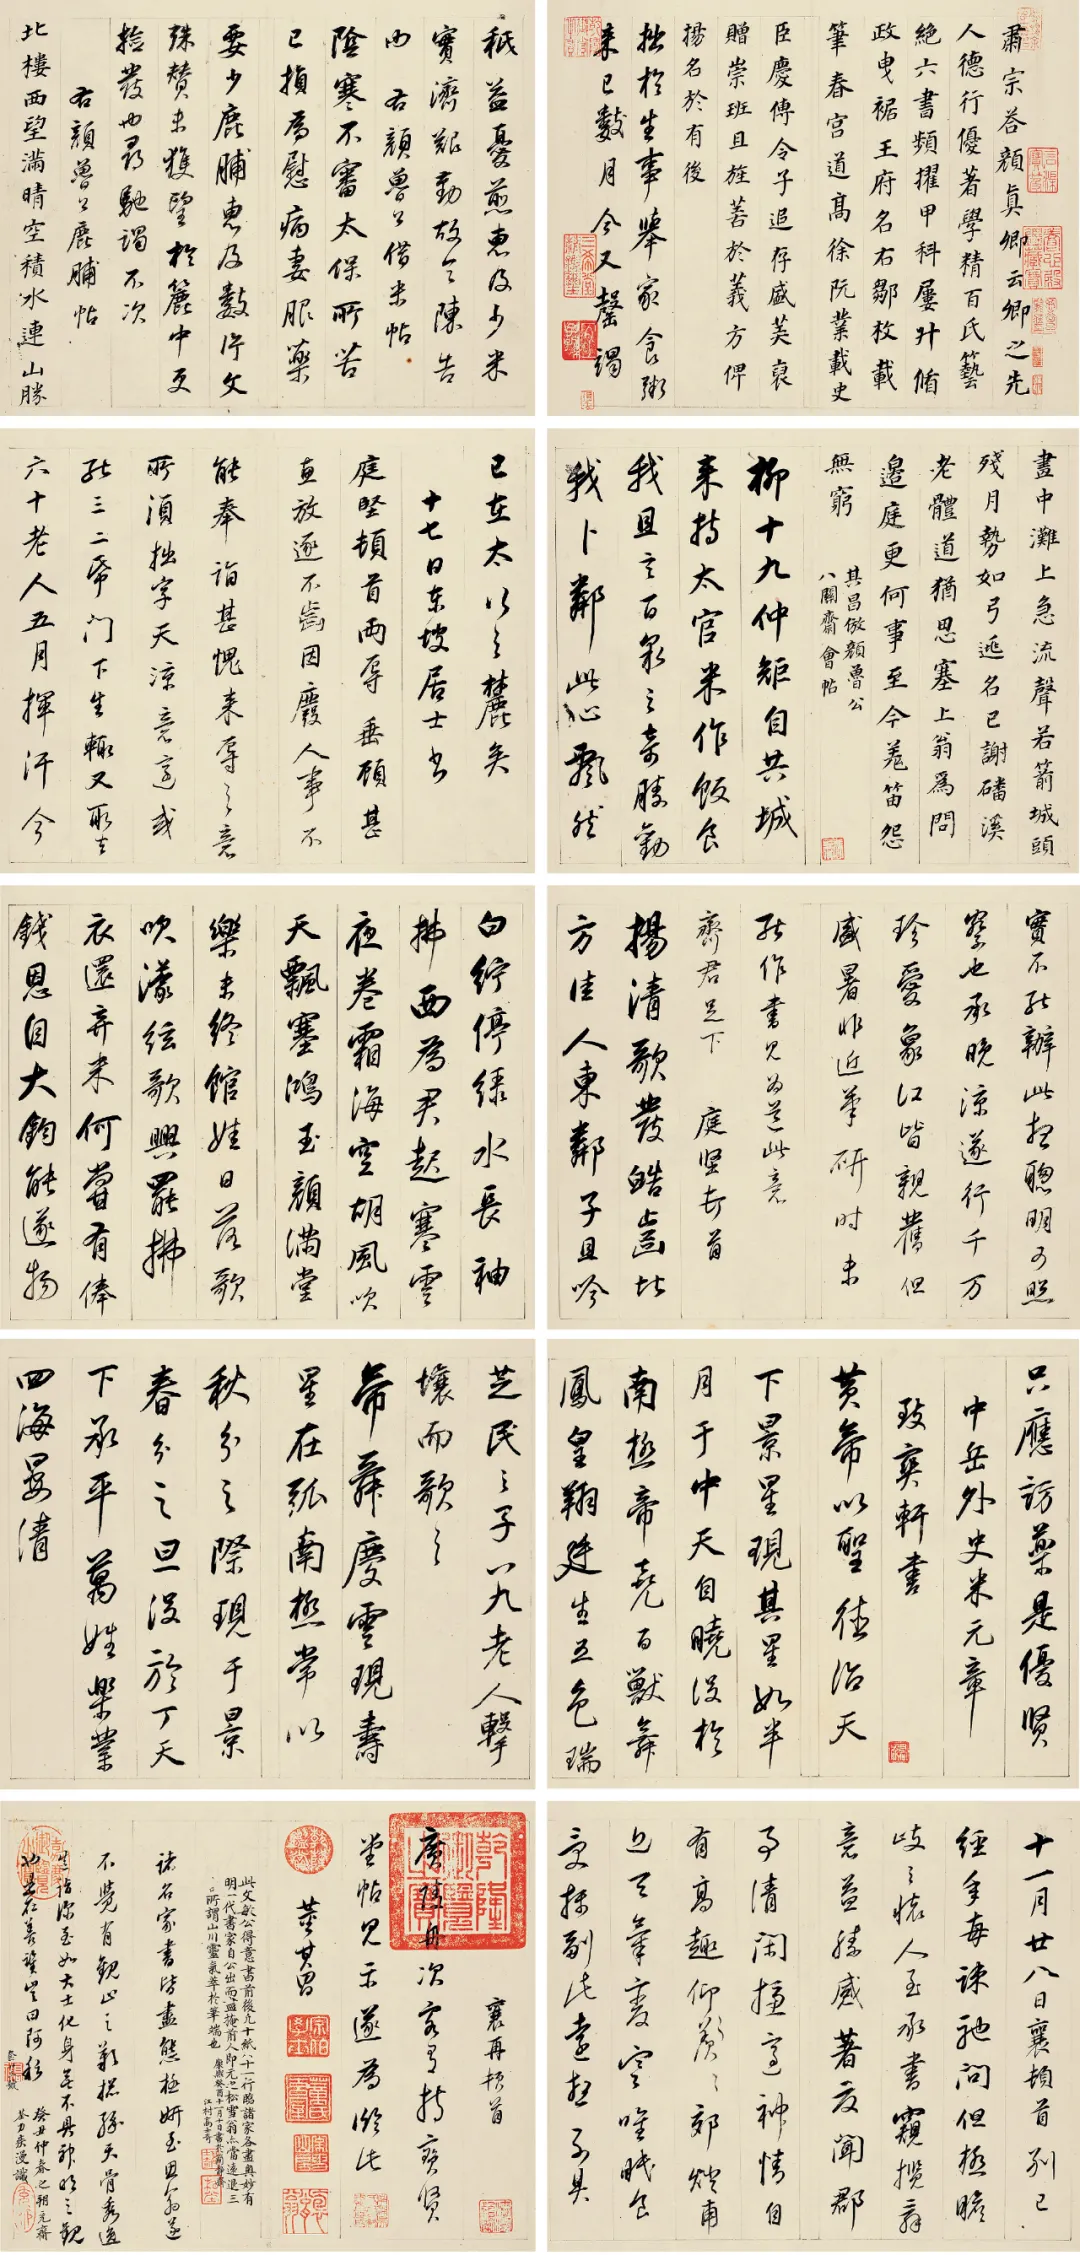 肅宗答顏真卿云卿之先
人德行優著學精百氏藝
絕六書頻擢甲科屢升循
政曳裾王府名右鄒枚載
筆春宮道高徐阮業載史
臣慶傳令子追存盛美褒
贈崇班且旌善於義方俾
揚名於有後
拙於生事舉家食粥
來已數月今又罄竭
秪益憂煎惠及少米
實濟艱勤故令陳告
右顏魯公借米帖
陰寒不審太保所苦
已損為慰病妻服藥
要少鹿脯惠及數片文
殊賛未獲望於簏中更
撿發也尋馳謁不次
右顏魯公鹿脯帖
北樓西望滿晴空積水連山勝
畫中灘上急流聲若箭城頭
殘月勢如弓逃名已謝磻溪
老體道猶思塞上翁為問
邉庭更何事至今羌笛怨
無窮
其昌倣顏魯公
八關齋會帖
柳十九仲矩自共城
來持太官米作飯食
我且言百泉之奇勝勸
我卜鄰此心飄然
已在太行之麓矣
十七日東坡居士書
庭堅頓首兩辱垂顧甚
惠放逐不齒因廢人事不
能奉詣甚愧來辱之意
所須拙字天涼意適或
能三二紙門下生輒又取去
六十老人五月揮汗今
實不能辦此想聰明可照
察也承晚涼遂行千萬
珍愛象江皆親舊但
盛暑非近筆研時未
能作書見為道此意
齊君足下 庭堅頓首
揚清歌發皓齒北
方佳人東鄰子且吟
白紵停綠水長袖
拂面為君起寒雲
夜卷霜海空胡風吹
天飄塞鴻玉顏滿堂
樂未終館娃日落歌
吹濛弦歌興罷拂
衣還弃米何當有俸
錢恩自大鈞能遂物
只應訪藥是優賢
中岳外史米元章
致爽軒書
黃帝以聖德治天
下景星現其星如半
月于中天自曉沒於
南極帝堯百獸舞
鳳皇翔廷生五色瑞
芝民之子八九老人擊
壤而歌之
帝舜慶雲現壽
星在弧南極常以
秋分之際現于景
春分之旦沒於丁天
下承平萬姓樂業
四海晏清
十一月廿八日襄頓首別已
經年每諫馳問但極瞻
岐之懷人至承書竊攬辭
意益勝感著及聞郡
事清閑擁高神情自
有高趣仰羨仰羨郊焌甫
近天氣寒唯眠食
受攝副此遠想不具
襄再頓首
廣陵舟次客有持寶賢
堂帖見示遂為臨此
董其昌
此文敏公得意書前後九十紙八十一行臨諸家各盡奧妙有
明一代書家自公出而盡掩前人即元之松雪翁亦當遠退三
所謂山川靈氣萃於筆端也
江村高士奇
諸名家書皆盡態極妍至思翁遂
不覺有觀止之歎